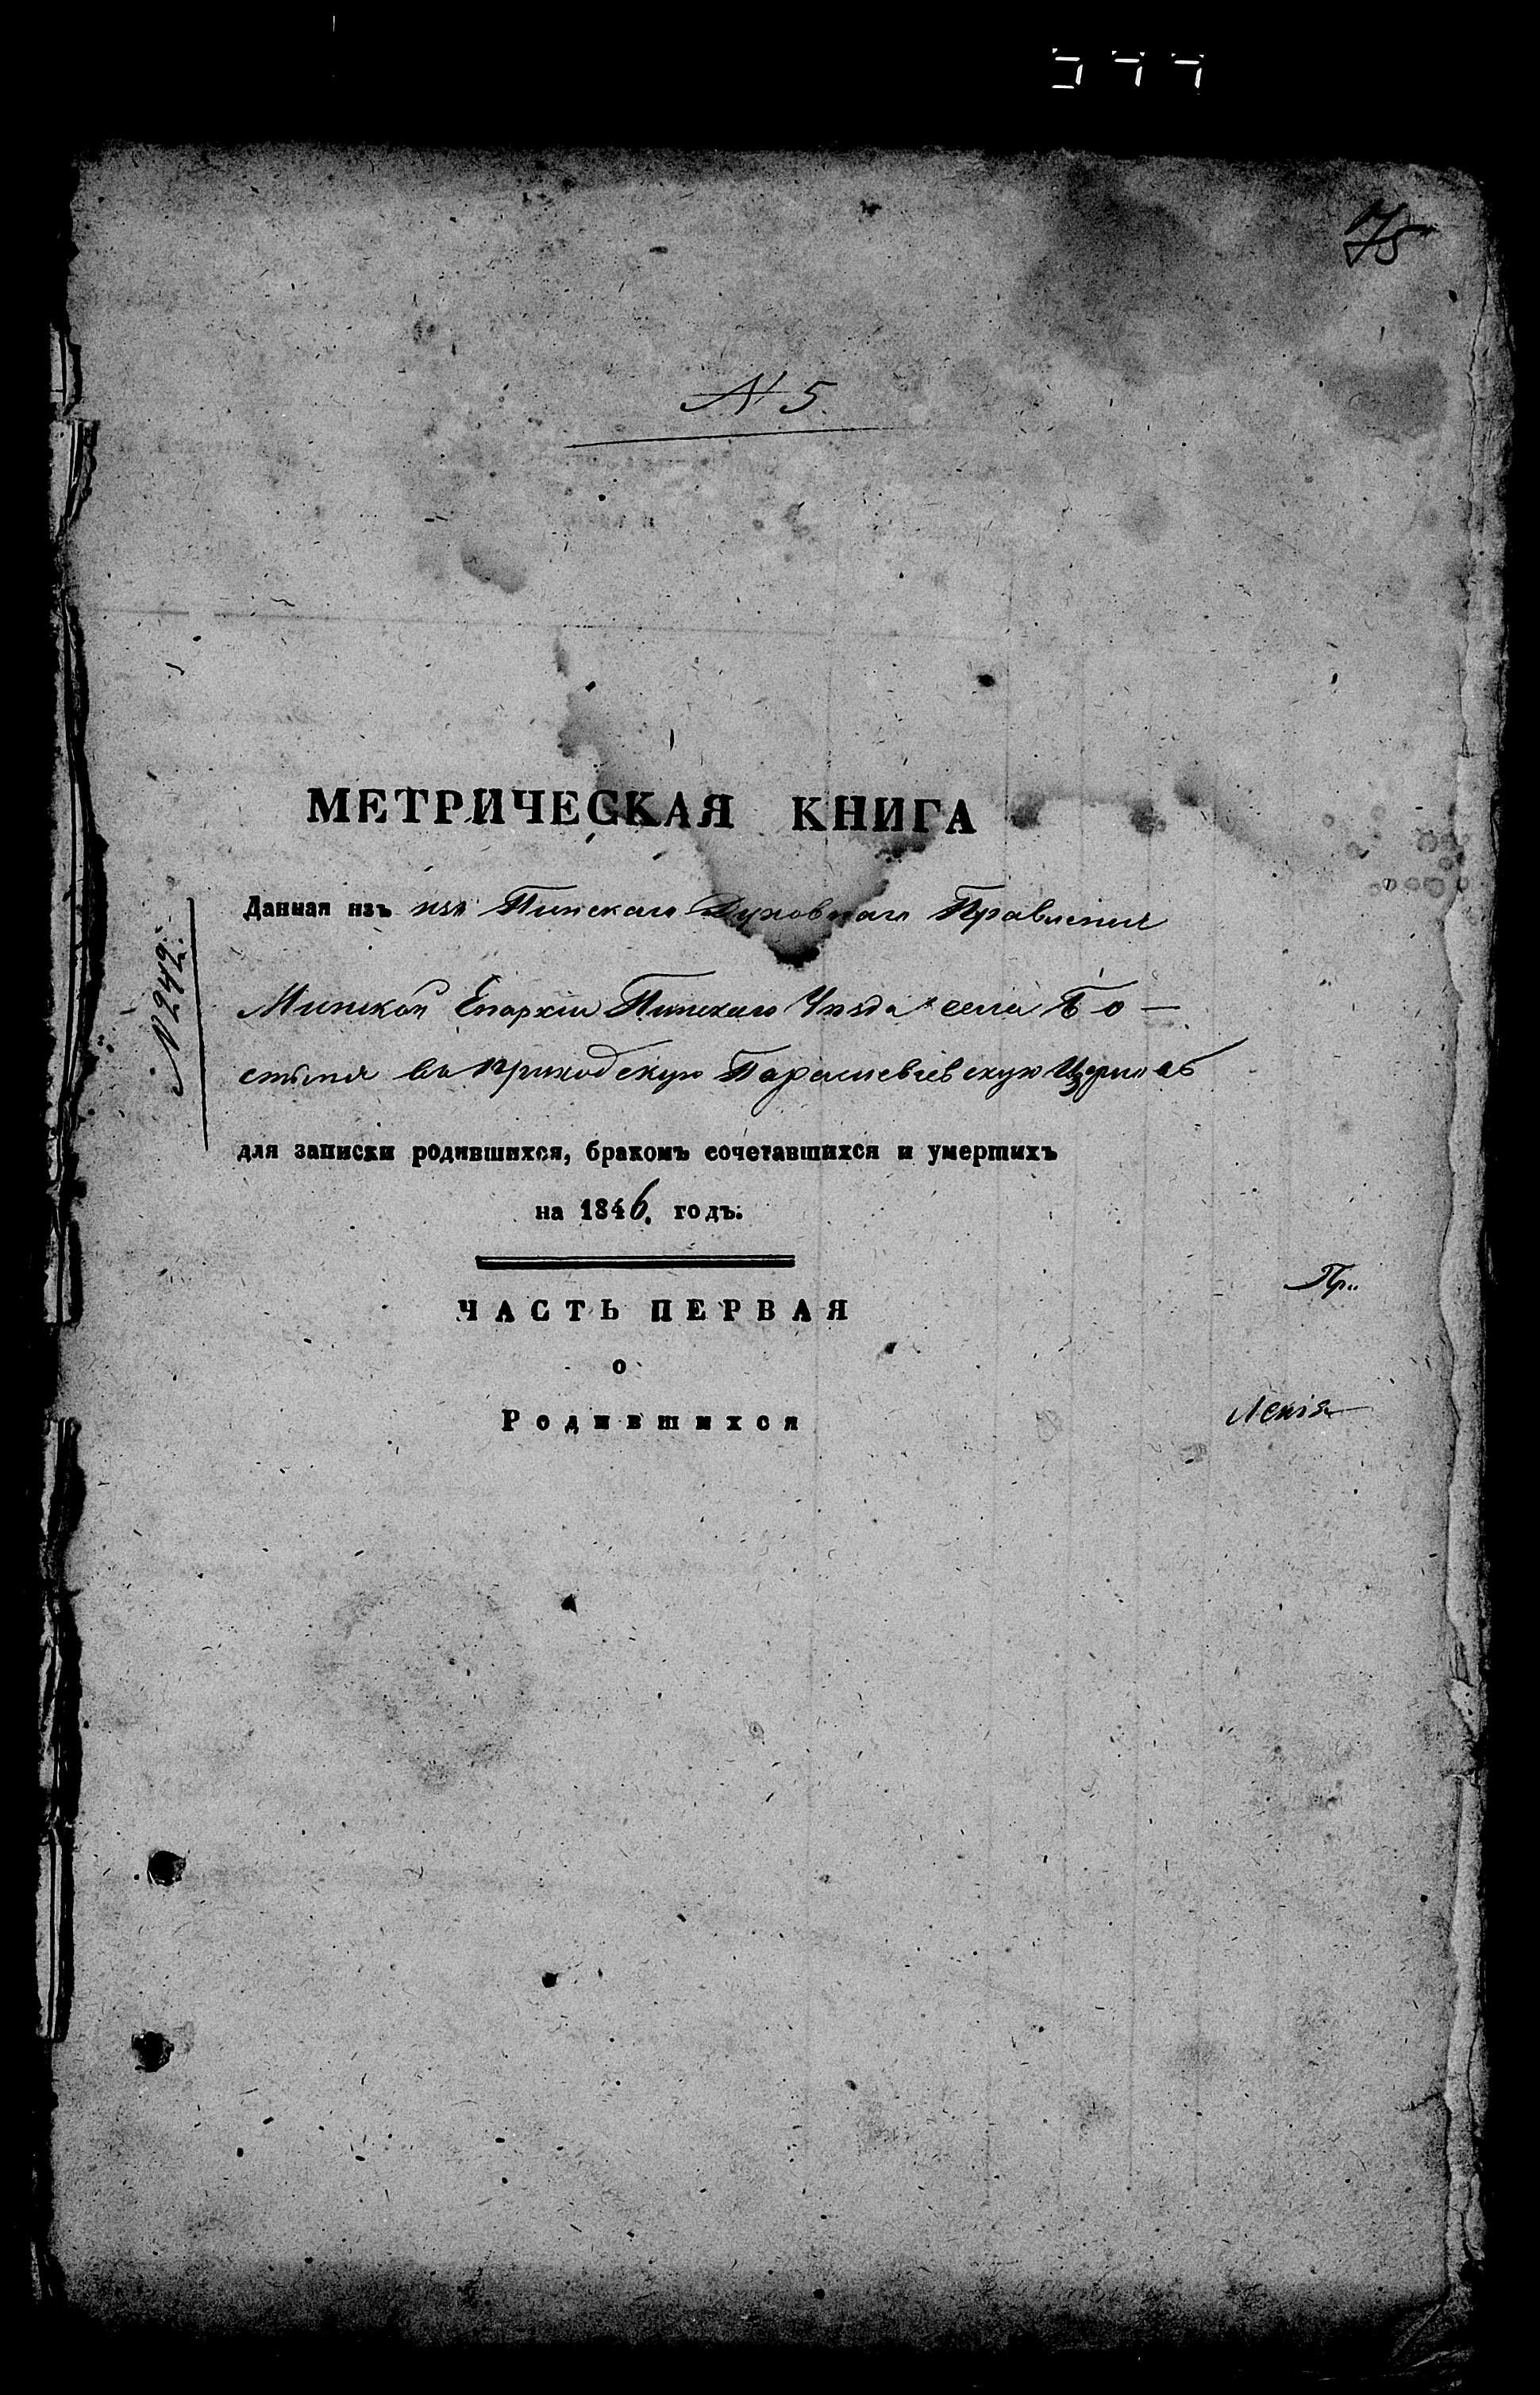 75
№ 5.
МЕТРИЧЕСКАЯ КНИГА
Данная изъ изъ Пинскаго Духовнаго Правленія
Минской Епархіи Пинскаго Уѣзда села Бо-
стыня въ приходскую Параскевіевскую Церковь
№ 242.
для записки родившихся, бракомъ сочетавшихся и умершихъ
на 1846. годъ.
Пр..
ЧАСТЬ ПЕРВАЯ
о
Родившихся
ленія